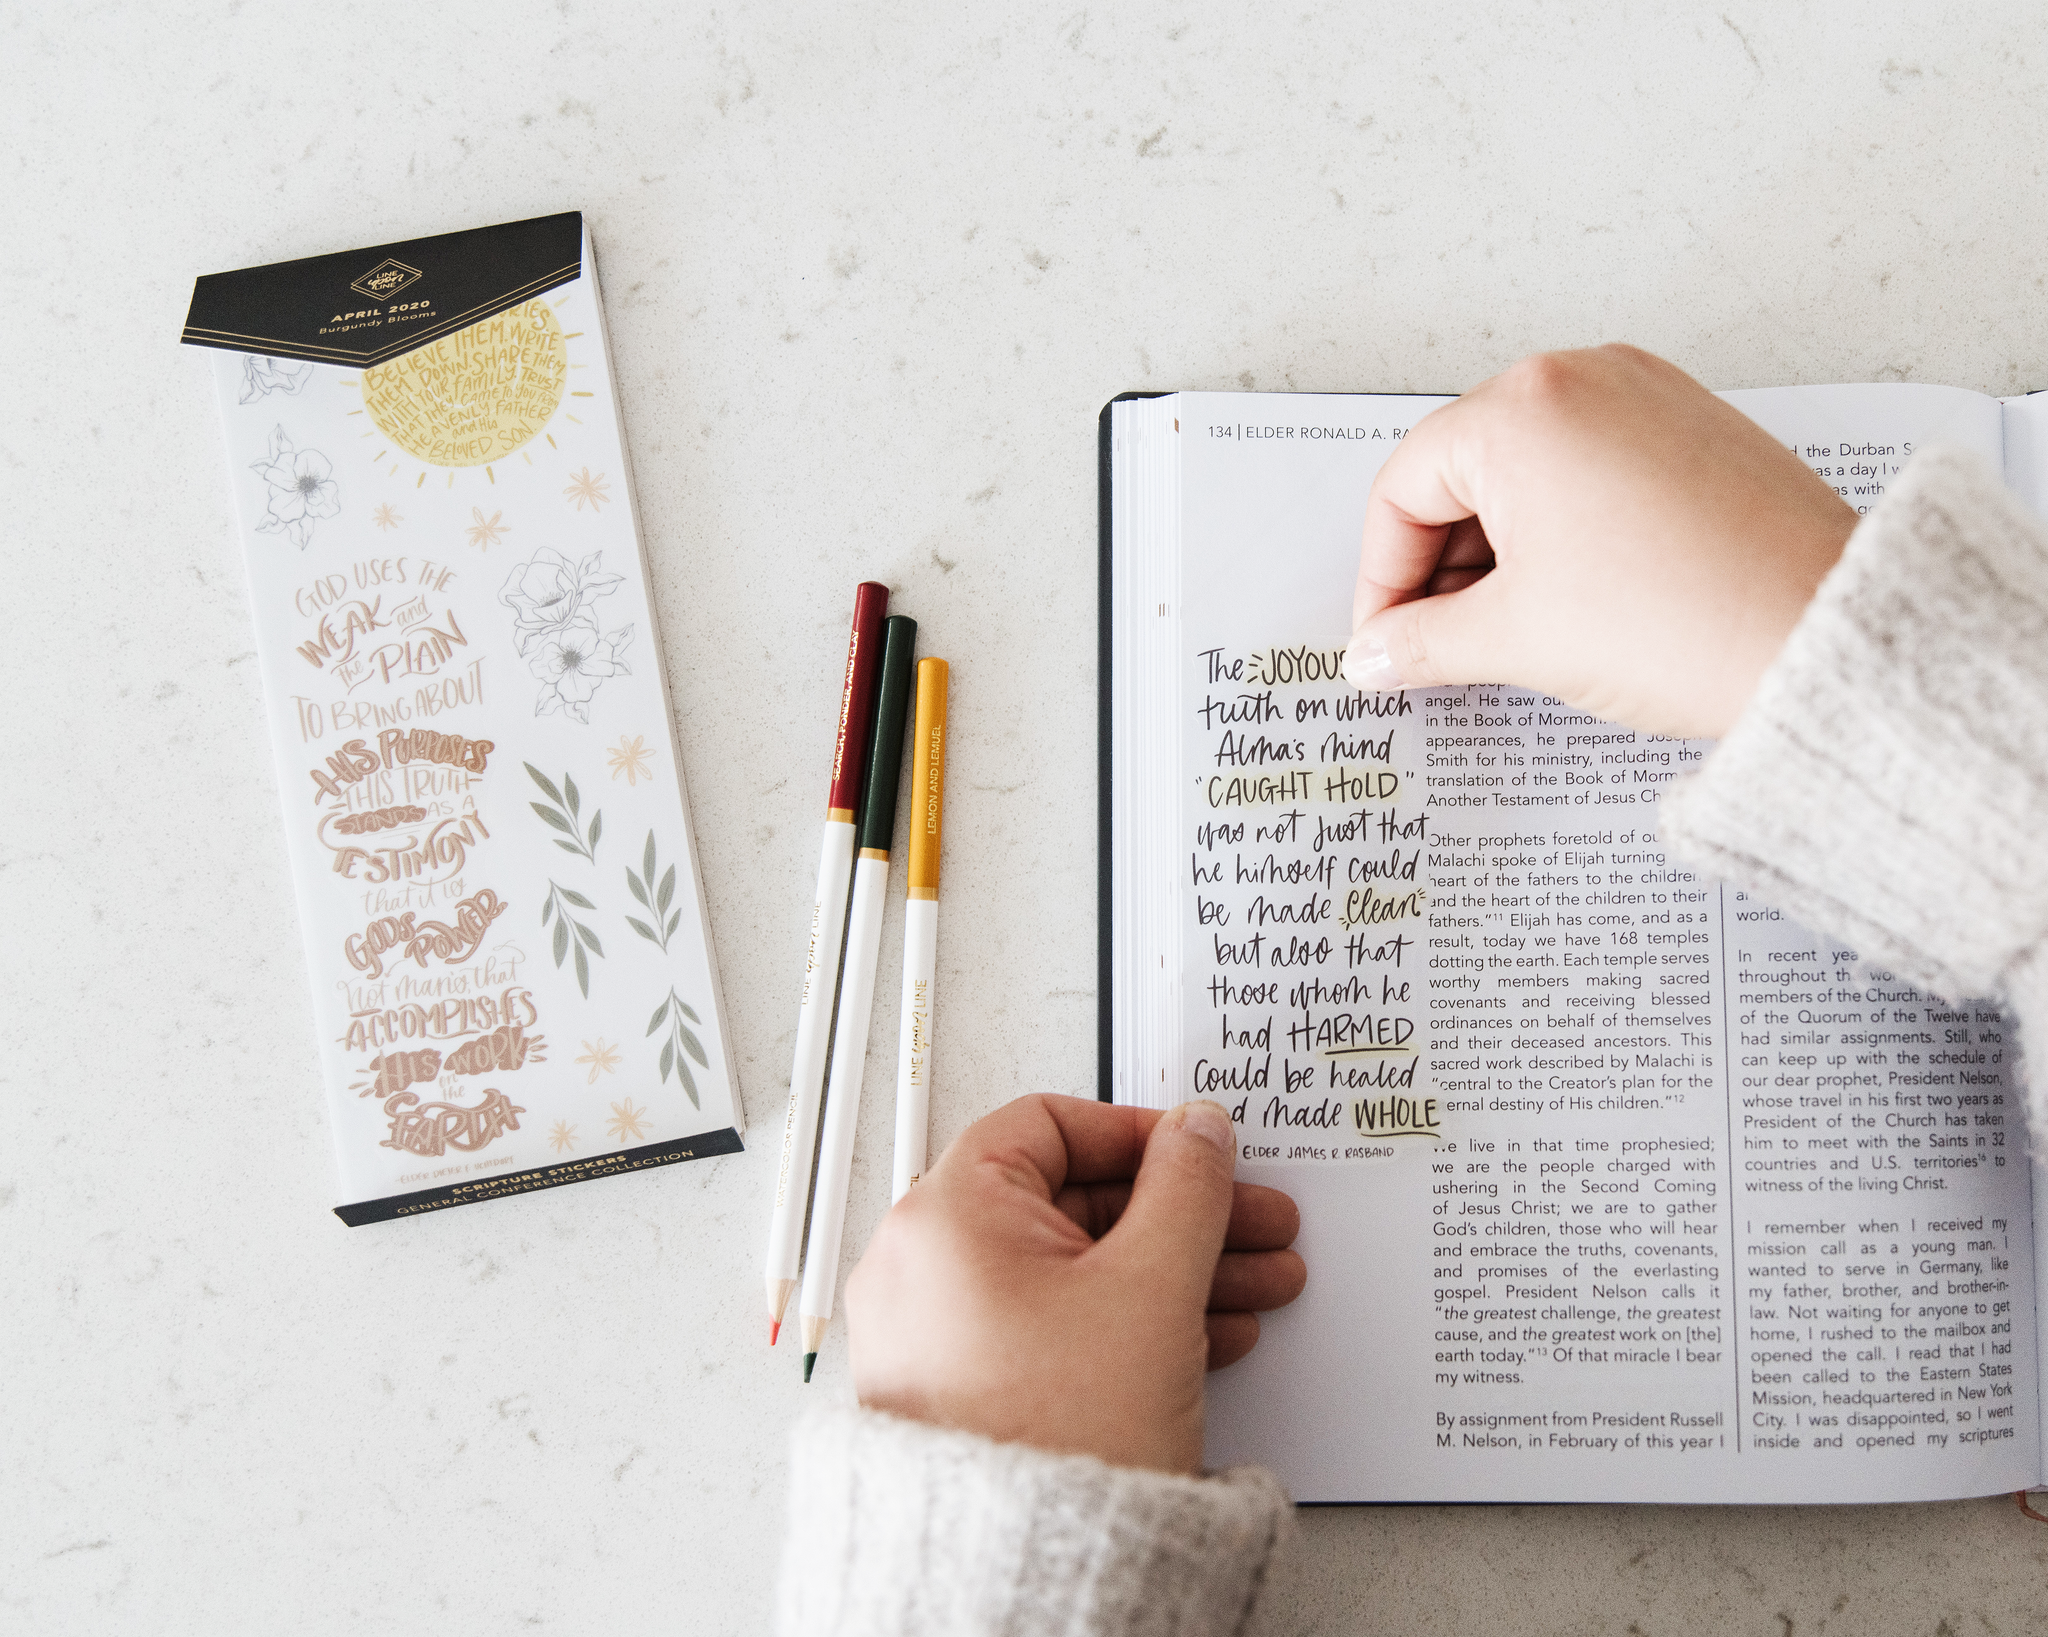 LINE
upon
LINE
APRIL 2020
Burgundy Blooms
BELIEVE THEM. WRITE
THEM DOWN. SHARE THEM
WITH YOUR FAMILY. TRUST
THAT THEY CAME TO YOU FROM
HEAVENLY FATHER
and His
BELOVED SON.
GOD USES THE
WEAK and
the PLAIN
TO BRING ABOUT
HIS PURPOSES
THIS TRUTH
STANDS AS A
TESTIMONY
that it is
GOD'S
POWER
not man's, that
ACCOMPLISHES
HIS WORK
on
the
EARTH
SCRIPTURE STICKERS
GENERAL CONFERENCE COLLECTION
SEARCH, PONDER, AND CLAY
LINE upon LINE
WATERCOLOR PENCIL
LEMON AND LEMUEL
LINE upon LINE
134 | ELDER RONALD A.
The JOYOUS
truth on which
Alma's mind
"CAUGHT HOLD"
was not just that
he himself could
be made clean
but also that
those whom he
had HARMED
Could be healed
made WHOLE
ELDER JAMES R. RASBAND
angel. He saw
in the Book of
appearances, he prepared Joseph
Smith for his ministry, including the
translation of the Book of
Another Testament of Jesus
Other prophets foretold of
Malachi spoke of Elijah turning
heart of the fathers to the children
and the heart of the children to their
fathers."11 Elijah has come, and as a
result, today we have 168 temples
dotting the earth. Each temple serves
worthy members making sacred
covenants and receiving blessed
ordinances on behalf of themselves
and their deceased ancestors. This
sacred work described by Malachi is
"central to the Creator's plan for the
destiny of His children."12
live in that time prophesied;
we are the people charged with
ushering in the Second Coming
of Jesus Christ; we are to gather
God's children, those who will hear
and embrace the truths, covenants,
and promises of the everlasting
gospel. President Nelson calls it
"the greatest challenge, the greatest
cause, and the greatest work on [the]
earth today."13 Of that miracle I bear
my witness.
By assignment from President Russell
M. Nelson, in February of this year I
the Durban
was a day I
with
world.
In recent
throughout
members of the Church. My
of the Quorum of the Twelve have
had similar assignments. Still, who
can keep up with the schedule of
our dear prophet, President Nelson,
whose travel in his first two years as
President of the Church has taken
him to meet with the Saints in 32
countries and U.S. territories16 to
witness of the living Christ.
I remember when I received my
mission call as a young man. I
wanted to serve in Germany, like
my father, brother, and brother-in-
law. Not waiting for anyone to get
home, I rushed to the mailbox and
opened the call. I read that I had
been called to the Eastern States
Mission, headquartered in New York
City. I was disappointed, so I went
inside and opened my scriptures